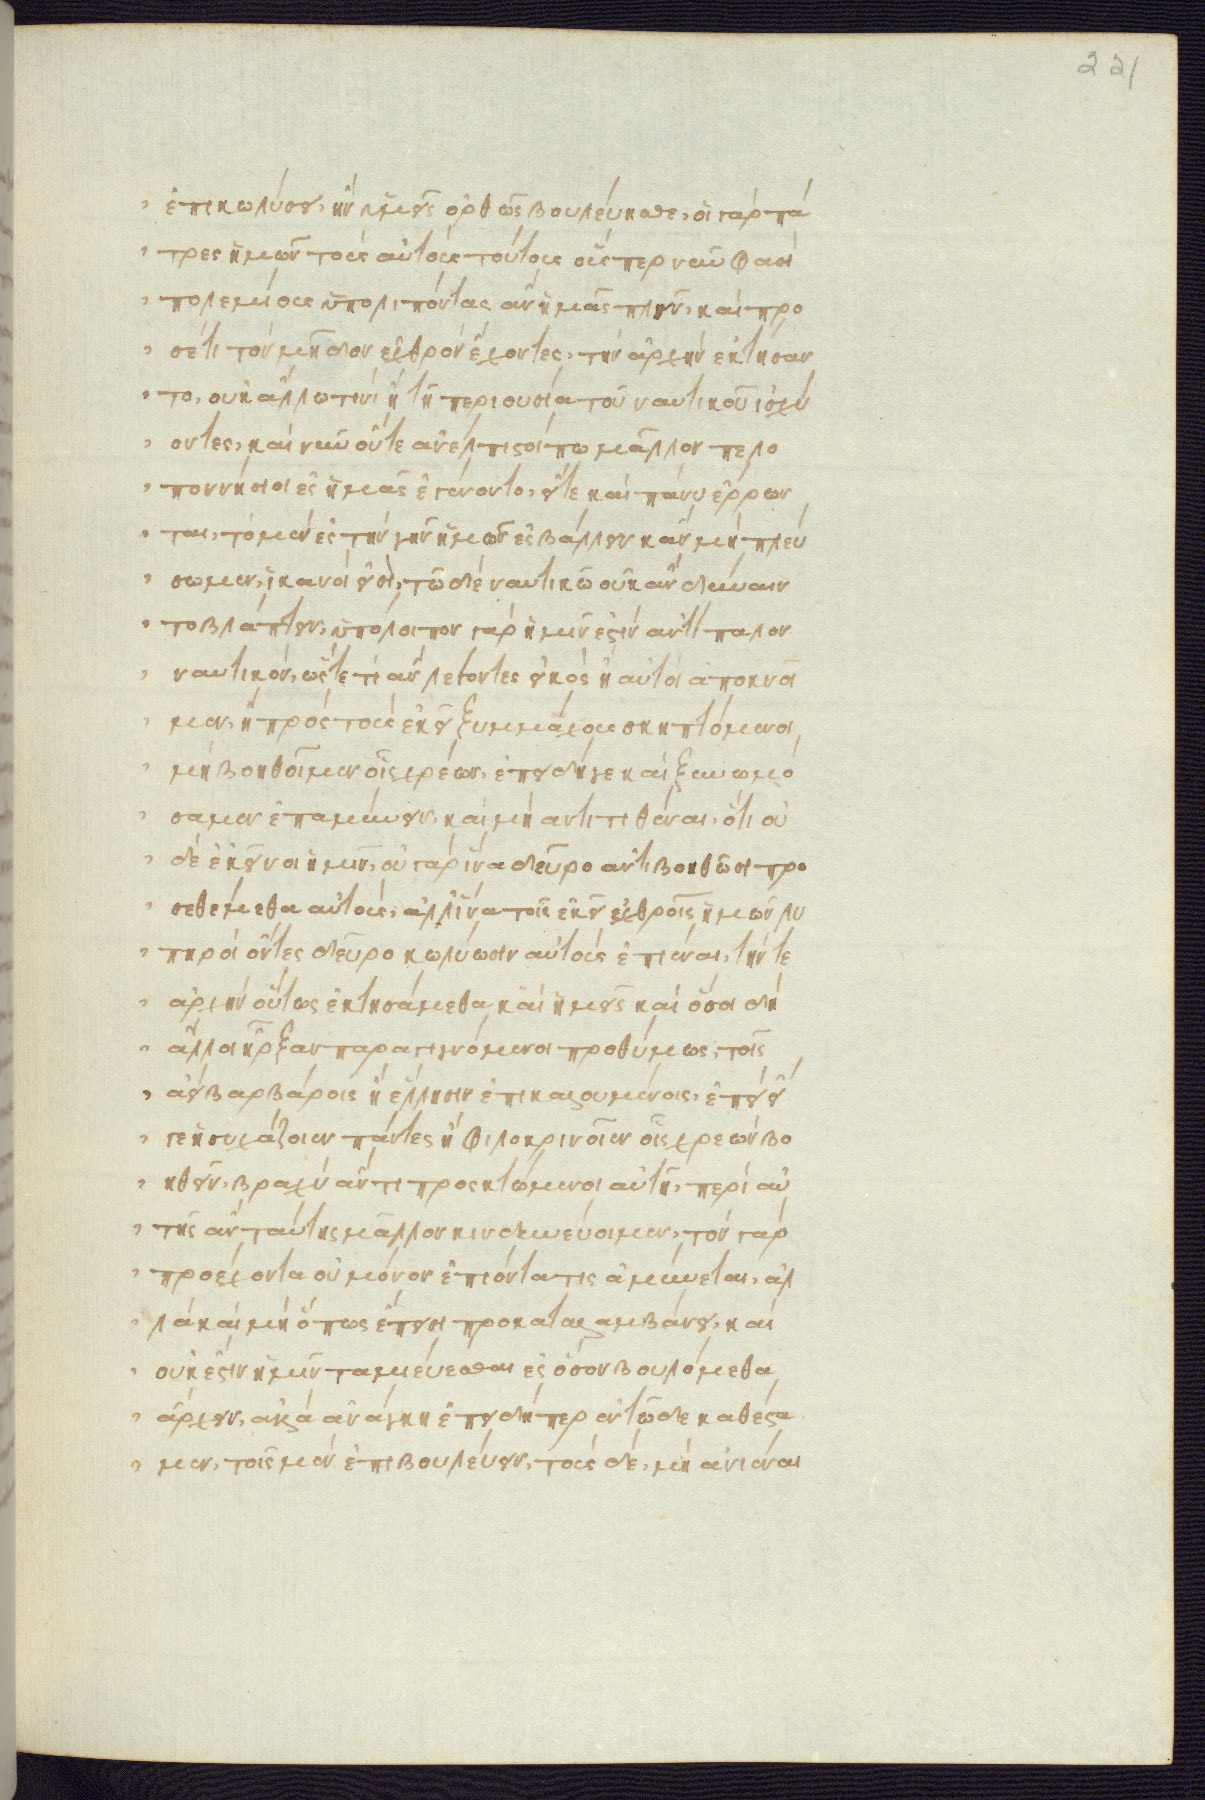 221
ἐπικωλύσει, ἢν ἡμεῖς ὀρθῶς βουλεύησθε, οἱ γὰρ πα
τρες ἡμῶν τοὺς αὐτοὺς τούτους οὕσπερ νῦν φασὶ
πολεμίους ὑπολιπόντας ἂν ἡμᾶς πλεῖν, καὶ προ
σέτι τὸν μῆδον ἐχθρὸν ἔχοντες, τὴν ἀρχὴν ἐκτήσαν
το, οὐκ ἄλλω τινὶ ἢ τῆ περιουσία τοῦ ναυτικοῦ ἰσχύ
οντες, καὶ νῦν οὔτε ἀνέλπιστοί πω μᾶλλον πελο
ποννήσιοι ἐς ἡμᾶς ἐγένοντο, εἴτε καὶ πάνυ ἔρρων
ται, τὸ μὲν ἐς τὴν γῆν ἡμῶν ἐσβάλλειν κἂν μὴ πλεύ
σωμεν, ἱκανοί εἰσὶ, τῶ δὲ ναυτικῶ οὐκ ἂν δύναιν
το βλάπτειν, ὑπόλοιπον γὰρ ἡμῖν ἐστὶν ἀντίπαλον
ναυτικόν, ὥστε τί ἂν λέγοντες εἰκὸς ἢ αὐτοὶ ἀποκνοῖ
μεν, ἢ πρὸς τοὺς ἐκεῖ ξυμμάχους σκηπτόμενοι
μὴ βοηθοῖμεν οἷς χρεὼν, ἐπειδή γε καὶ ξυνωμό
σαμεν ἐπαμύνειν, καὶ μὴ ἀντιτιθέναι, ὅτι οὐ
δὲ ἐκεῖνοι ἡμῖν, οὐ γὰρ ἵνα δεῦρο ἀντιβοηθῶσι προ
σεθέμεθα αὐτοὺς, ἀλλ' ἵνα τοῖς ἐκεῖ ἐχθροῖς ἡμῶν λυ
πηροὶ ὄντες δεῦρο κωλύωσιν αὐτοὺς ἐπιέναι, τήν τε
ἀρχὴν οὕτως ἐκτησάμεθα καὶ ἡμεῖς καὶ ὅσοι δὴ
ἄλλοι ἦρξαν παραγιγνόμενοι προθύμως, τοῖς
ἀεὶ βαρβάροις ἢ ἕλλησιν ἐπικαλουμένοις, ἐπεὶ εἴ
γε ἡσυχάζοιεν πάντες ἢ φιλοκρινοῖεν οἷς χρεὼν βο
ηθεῖν, βραχὺ ἄν τι προσκτώμενοι αὐτῆ, περὶ αὐ
τῆς ἂν ταύτης μᾶλλον κινδυνεύοιμεν, τὸν γὰρ
προέχοντα οὐ μόνον ἐπιόντα τις ἀμύνεται, ἀλ
λὰ καὶ μὴ ὅπως ἔπεισι προκαταλαμβάνει, καὶ
οὐκ ἔστιν ἡμῖν ταμιεύεσθαι ἐς ὅσον βουλόμεθα
ἄρχειν, ἀλλὰ ἀνάγκη ἐπειδήπερ ἐν τῶδε καθέστα
μεν, τοῖς μὲν ἐπιβουλεύειν, τοὺς δὲ, μὴ ἀνιέναι